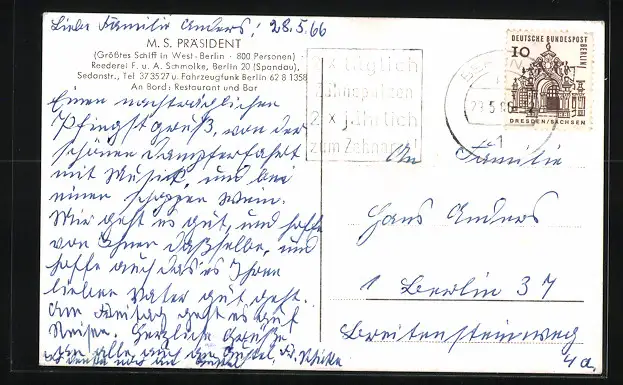 Liebe Familie Anders! 28.5.66
M. S. PRÄSIDENT
(Größtes Schiff in West-Berlin · 800 Personen)
Reederei F. u. A. Schmolke, Berlin 20 (Spandau),
Sedanstr., Tel 37 35 27 u. Fahrzeugfunk Berlin 62 8 1358
An Bord: Restaurant und Bar
Einen nachträglichen
Pfingstgruß, von der
schönen Dampferfahrt
mit Musik, und bei
einen schoppen Wein.
Mir geht es gut, und hoffe
von Ihnen dasselbe, und
hoffe auch das es Ihren
lieben Vater gut geht.
Am Freitag geht es auf
Reisen. Herzliche Grüße
an alle, auch an
2 x täglich
Zähneputzen
2 x jährlich
zum Zahnarzt!
BERLIN
DEUTSCHE BUNDESPOST
BERLIN
10
DRESDEN/SACHSEN
An Familie
Hans Anders
1 Berlin 37
Breitensteinweg
4a.